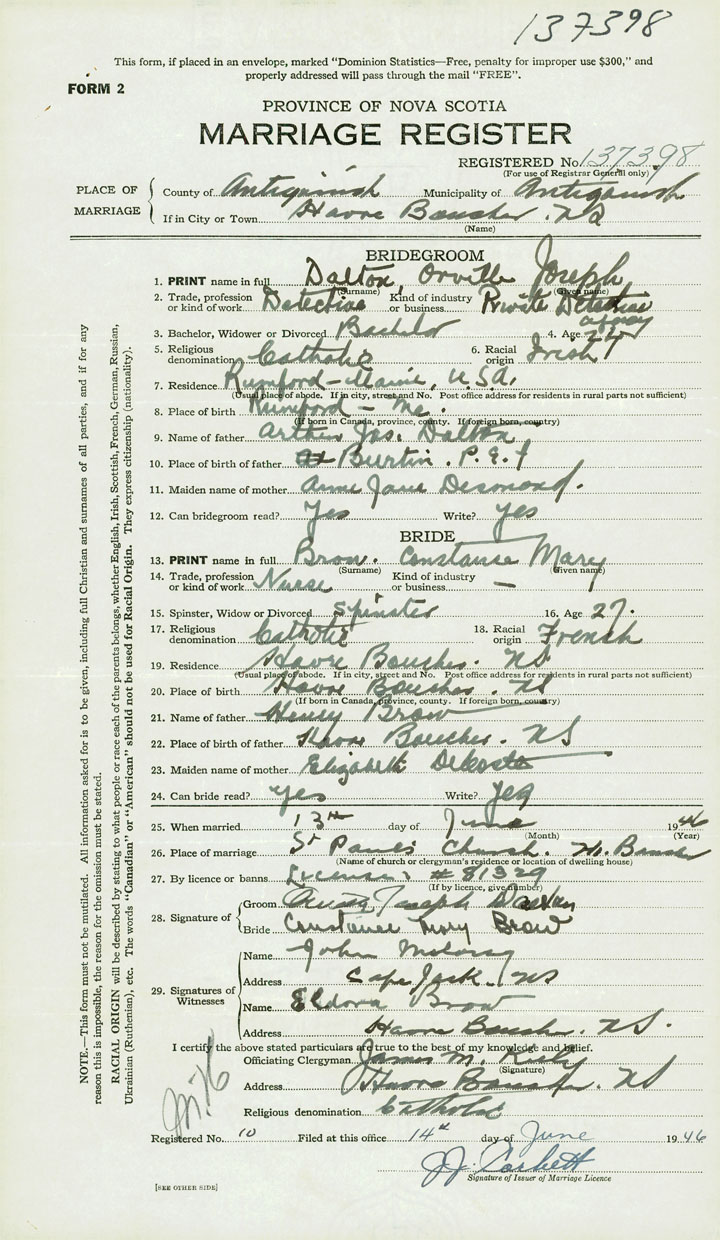 137398
This form, if placed in an envelope, marked "Dominion Statistics—Free, penalty for improper use $300," and
properly addressed will pass through the mail "FREE".
FORM 2
PROVINCE OF NOVA SCOTIA
MARRIAGE REGISTER
REGISTERED No. 137398
(For use of Registrar General only)
PLACE OF MARRIAGE
County of Antigonish Municipality of Antigonish
If in City or Town Havre Boucher. NS
(Name)
BRIDEGROOM
1. PRINT name in full Dalton, Orville Joseph
(Surname) (Given name)
2. Trade, profession or kind of work Detective Kind of industry or business Private Detective agency
3. Bachelor, Widower or Divorced Bachelor 4. Age 24
5. Religious denomination Catholic 6. Racial origin Irish
7. Residence Rumford - Maine, U.S.A.
(Usual place of abode. If in city, street and No. Post office address for residents in rural parts not sufficient)
8. Place of birth Rumford - Me.
(If born in Canada, province, county. If foreign born, country)
9. Name of father Arthur Jos. Dalton
10. Place of birth of father Burtin. P.E.I
11. Maiden name of mother Anne Jane Desmond.
12. Can bridegroom read? Yes Write? Yes
BRIDE
13. PRINT name in full Brow. Constance Mary
(Surname) (Given name)
14. Trade, profession or kind of work Nurse Kind of industry or business —
15. Spinster, Widow or Divorced Spinster 16. Age 27.
17. Religious denomination Catholic 18. Racial origin French
19. Residence Havre Boucher. NS
(Usual place of abode. If in city, street and No. Post office address for residents in rural parts not sufficient)
20. Place of birth Havre Boucher. NS
(If born in Canada, province, county. If foreign born, country)
21. Name of father Henry Brow
22. Place of birth of father Havre Boucher. NS
23. Maiden name of mother Elizabeth DeCoste
24. Can bride read? Yes Write? Yes
25. When married 13th day of June 1946
(Month) (Year)
26. Place of marriage St Paul's Church. H. Boucher
(Name of church or clergyman's residence or location of dwelling house)
27. By licence or banns License # 81329
(If by licence, give number)
28. Signature of
Groom Joseph Dalton
Bride Constance Mary Brow
29. Signatures of Witnesses
Name John
Address Cape Jack. NS
Name Eldora Brow
Address Havre Boucher. NS.
I certify the above stated particulars are true to the best of my knowledge and belief.
Officiating Clergyman James M.
(Signature)
Address Havre Boucher. NS
Religious denomination Catholic
Registered No. 10 Filed at this office 14th day of June 1946
J.J. Corbett
Signature of Issuer of Marriage Licence
[SEE OTHER SIDE]
NOTE.—This form must not be mutilated. All information asked for is to be given, including full Christian and surnames of all parties, and if for any
reason this is impossible, the reason for the omission must be stated.
RACIAL ORIGIN will be described by stating to what people or race each of the parents belongs, whether English, Irish, Scottish, French, German, Russian,
Ukrainian (Ruthenian), etc. The words "Canadian" or "American" should not be used for Racial Origin. They express citizenship (nationality).